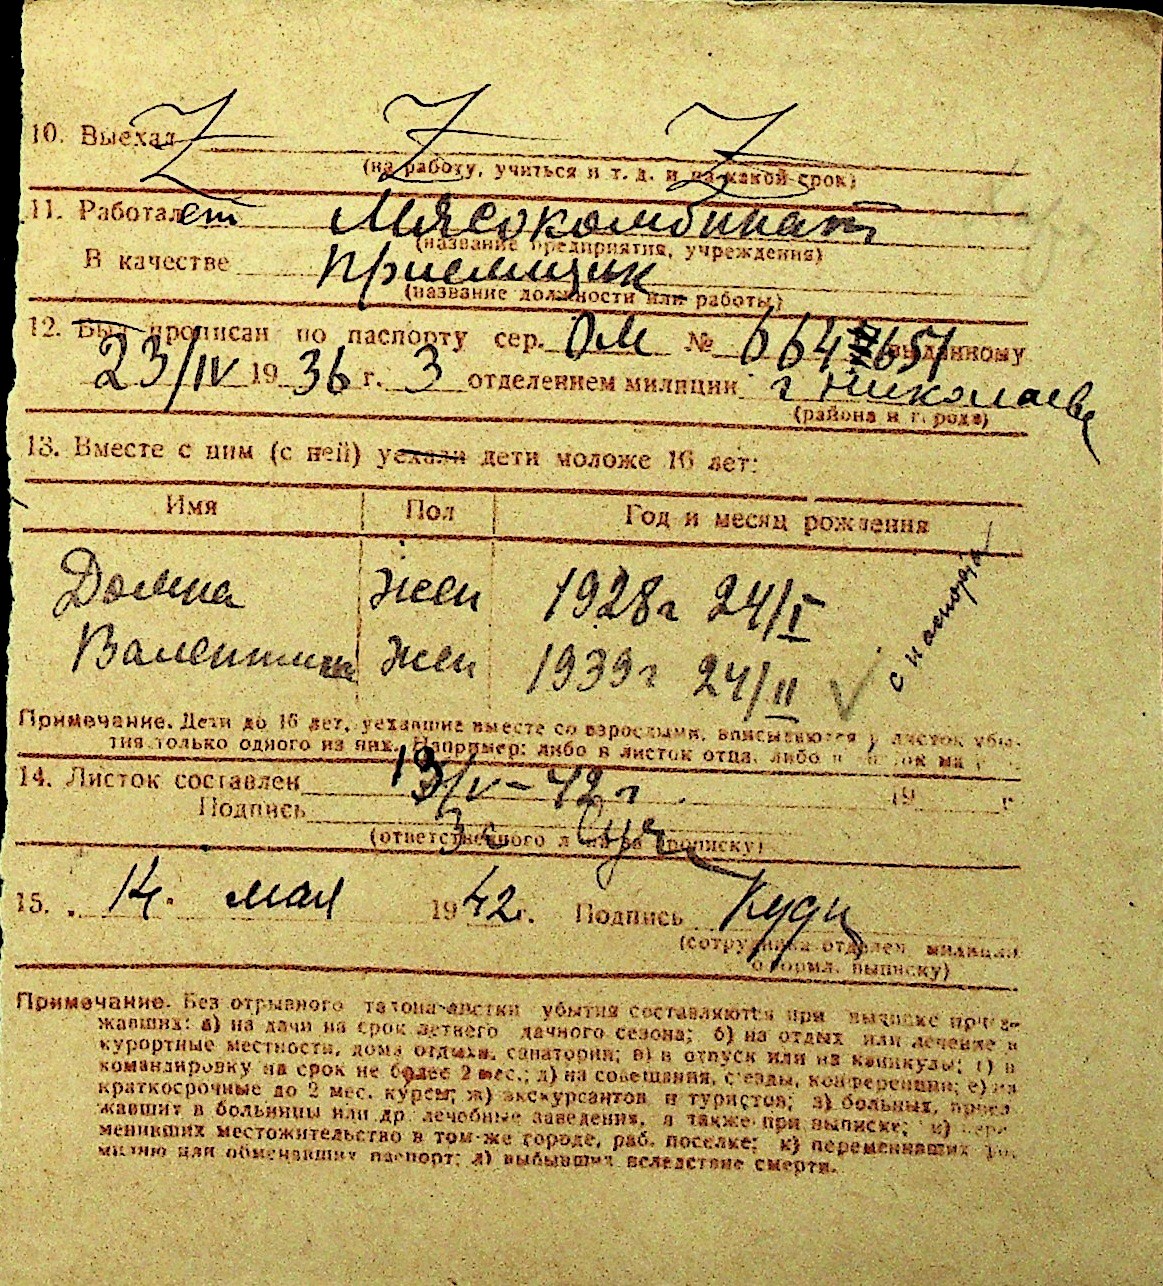 10. Выехал Z Z Z
(на работу, учиться и т. д. и на какой срок)
11. Работает Мясокомбинат
(название предприятия, учреждения)
В качестве приемщик
(название должности или работы)
12. Был прописан по паспорту сер. ОМ № 664 651 выданному
23/IV 1936 г. 3 отделением милиции г Николаева
(района и города)
13. Вместе с ним (с ней) уехали дети моложе 16 лет:
Имя Пол Год и месяц рождения
Домна жен 1928 г 24/I
Валентина жен 1939 г 24/II
с паспорта
Примечание. Дети до 16 лет, уехавшие вместе со взрослыми, вписываются в листок убы-
тия только одного из них. Например: либо в листок отца, либо в листок ма
14. Листок составлен 13/V-42 г. 19 г
Подпись
(ответственного лица за прописку)
15. 14. мая 1942 г. Подпись
(сотрудника отделен. милиции
оформл. выписку)
Примечание. Без отрывного талона листки убытия составляются при выписке приез-
жавших: а) на дачи на срок летнего дачного сезона; б) на отдых или лечение в
курортные местности, дома отдыха, санатории; в) в отпуск или на каникулы; г) в
командировку на срок не более 2 мес.; д) на совещания, с'езды, конференции; е) на
краткосрочные до 2 мес. курсы; ж) экскурсантов и туристов; з) больных, приез
жавших в больницы или др. лечебные заведения, а также при выписке; и) пере
менивших местожительство в том-же городе, раб. поселке; к) переменивших фа.
милию или обменявших паспорт; л) выбывших вследствие смерти.